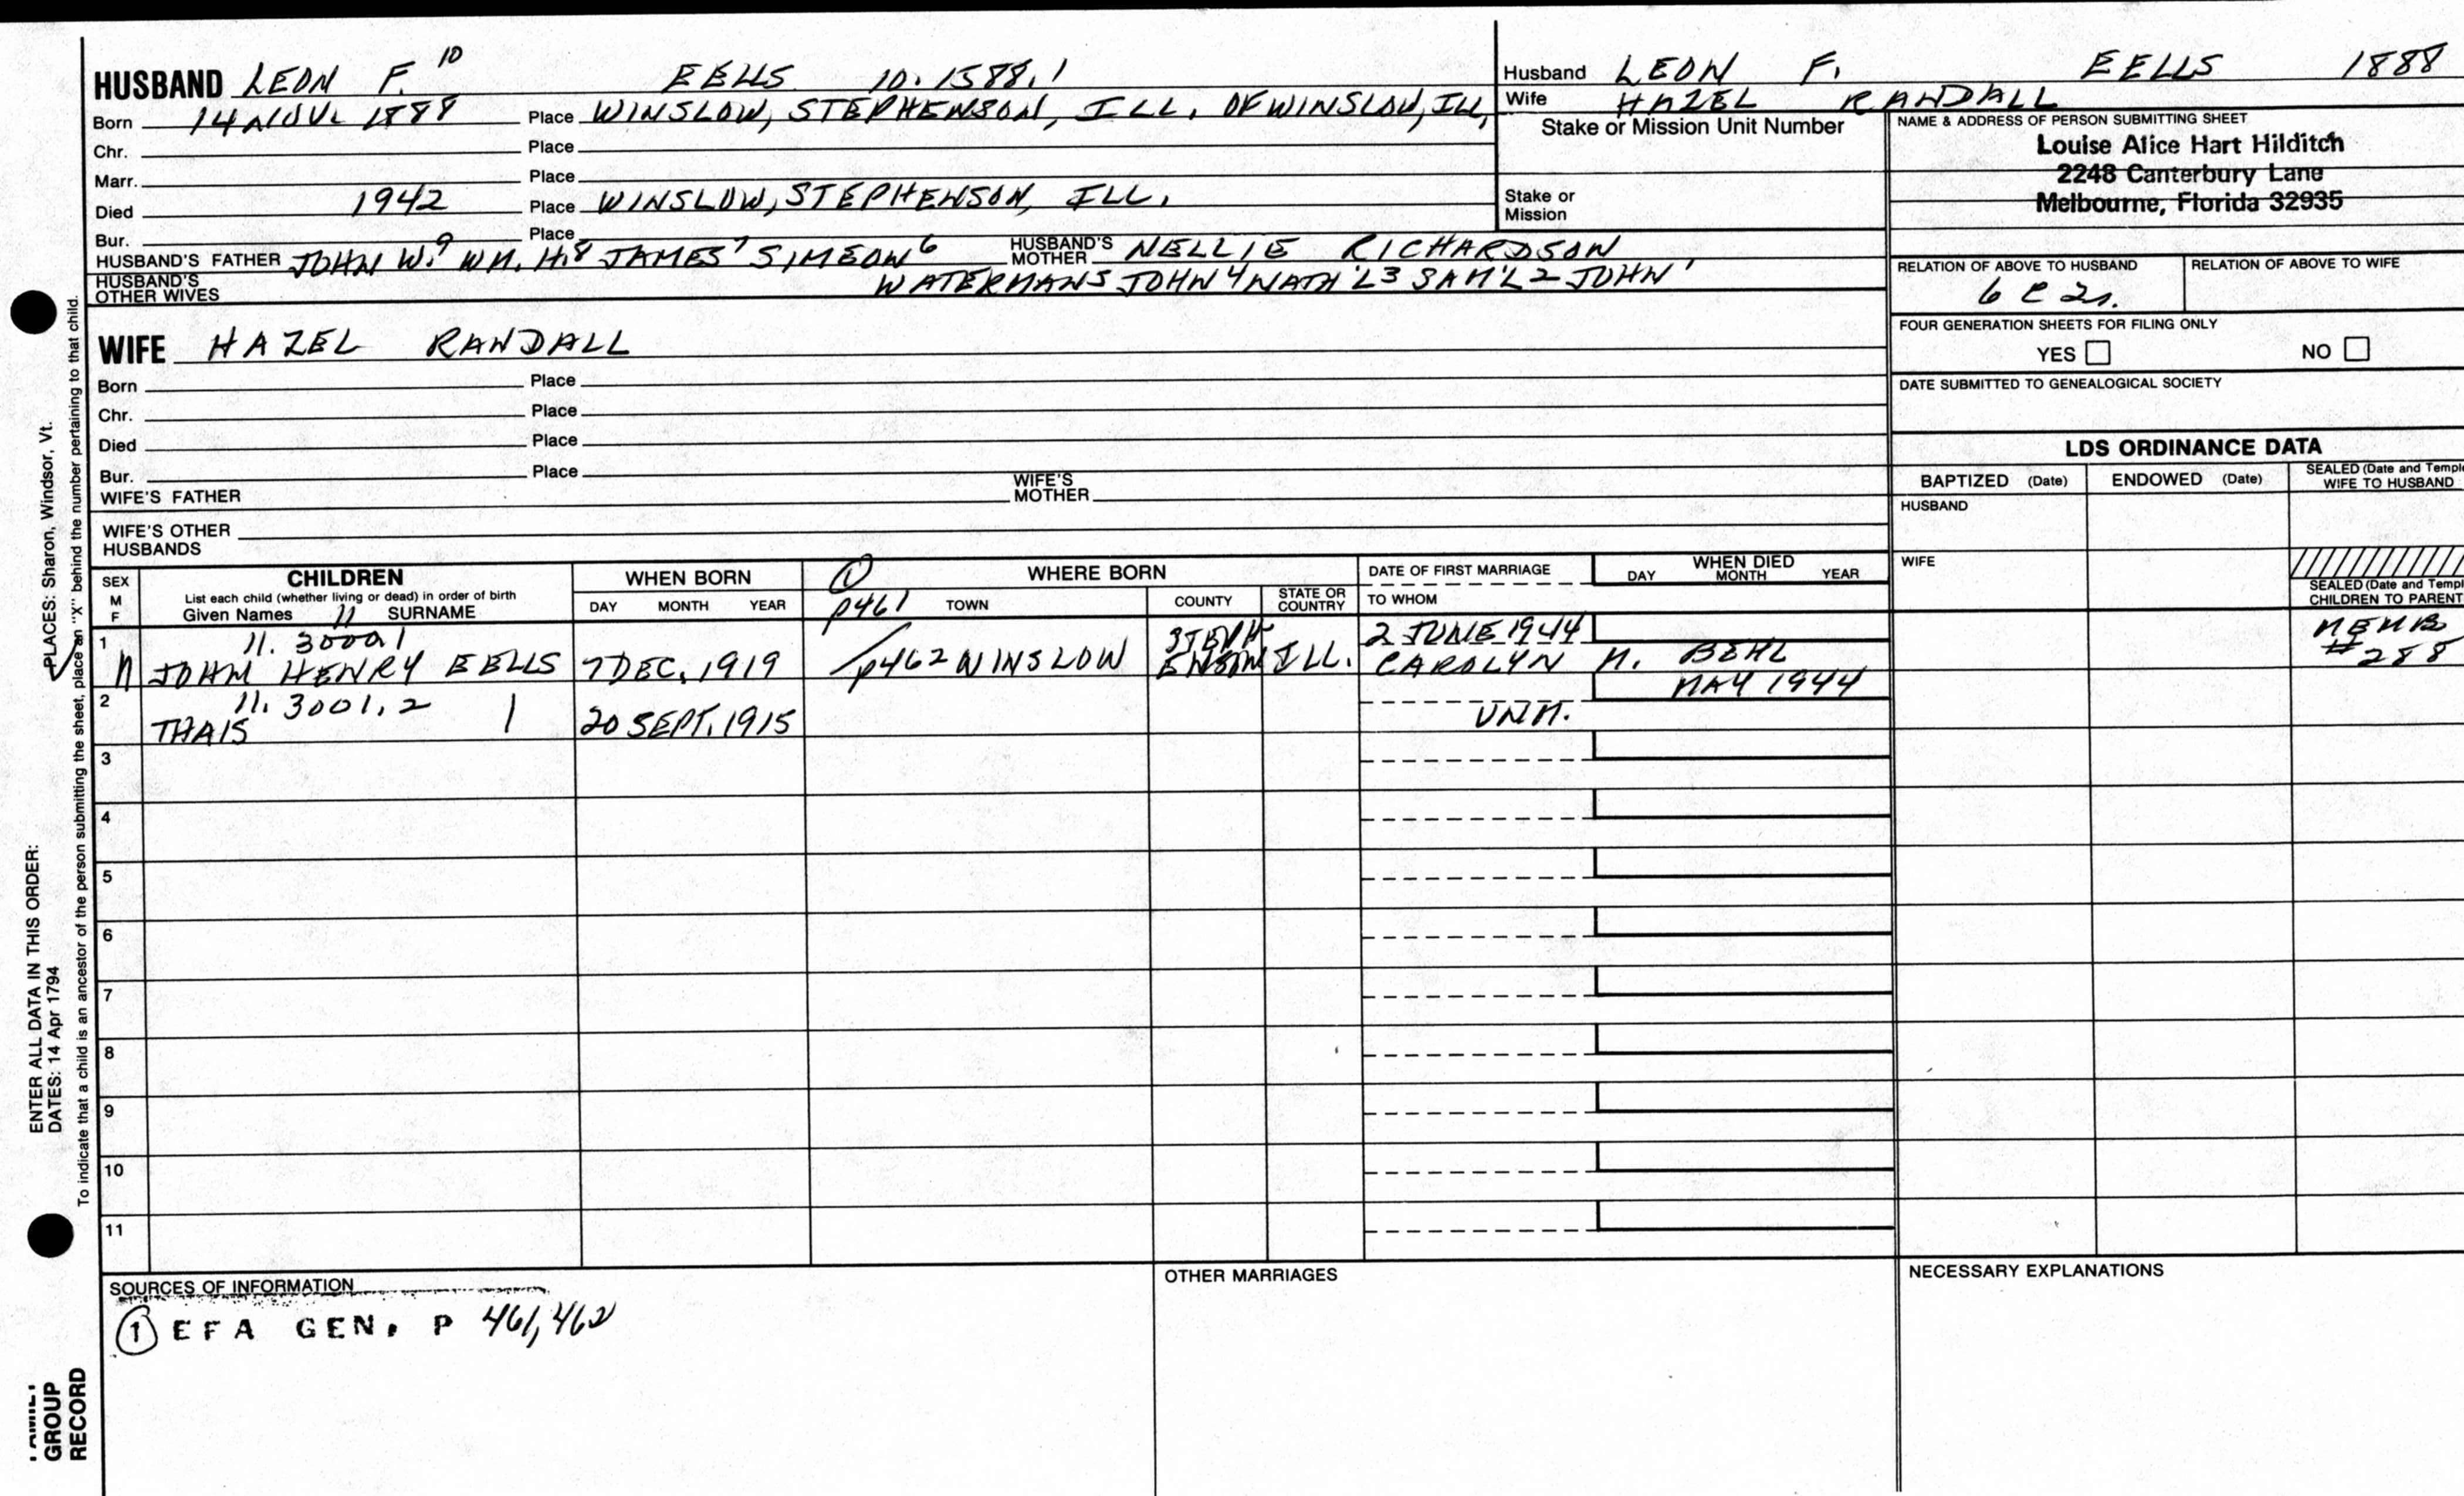 HUSBAND LEON F. 10 EELLS 10.1588.1
Born 14 NOV. 1888 Place WINSLOW, STEPHENSON, ILL. OF WINSLOW, ILL,
Chr. Place
Marr. Place
Died 1942 Place WINSLOW, STEPHENSON, ILL.
Bur. Place
HUSBAND'S FATHER JOHN W.9 WM. H.8 JAMES7 SIMEON6 HUSBAND'S MOTHER NELLIE RICHARDSON
HUSBAND'S OTHER WIVES WATERMAN5 JOHN4 NATH'L3 SAM'L2 JOHN1
Husband LEON F. EELLS 1888
Wife HAZEL RANDALL
Stake or Mission Unit Number
Stake or Mission
NAME & ADDRESS OF PERSON SUBMITTING SHEET
Louise Alice Hart Hilditch
2248 Canterbury Lane
Melbourne, Florida 32935
RELATION OF ABOVE TO HUSBAND RELATION OF ABOVE TO WIFE
6 C 2r.
FOUR GENERATION SHEETS FOR FILING ONLY
YES NO
DATE SUBMITTED TO GENEALOGICAL SOCIETY
WIFE HAZEL RANDALL
Born Place
Chr. Place
Died Place
Bur. Place
WIFE'S FATHER WIFE'S MOTHER
WIFE'S OTHER HUSBANDS
LDS ORDINANCE DATA
BAPTIZED (Date) ENDOWED (Date) SEALED (Date and Temple
WIFE TO HUSBAND
HUSBAND
WIFE
SEALED (Date and Templ
CHILDREN TO PARENT
SEX M F CHILDREN WHEN BORN 1 WHERE BORN DATE OF FIRST MARRIAGE WHEN DIED
List each child (whether living or dead) in order of birth
Given Names 11 SURNAME DAY MONTH YEAR p461 TOWN COUNTY STATE OR COUNTRY TO WHOM DAY MONTH YEAR
1 11. 3000.1 STEPH 2 JUNE 1944 MEMB
M JOHN HENRY EELLS 7 DEC. 1919 p462 WINSLOW ENSON ILL. CAROLYN M. BEHL #288
2 11. 3001.2 MAY 1944
THAIS 20 SEPT. 1915 UNM.
3
4
5
6
7
8
9
10
11
SOURCES OF INFORMATION
1 EFA GEN. P 461,462
OTHER MARRIAGES
NECESSARY EXPLANATIONS
ENTER ALL DATA IN THIS ORDER:
DATES: 14 Apr 1794
PLACES: Sharon, Windsor, Vt.
To indicate that a child is an ancestor of the person submitting the sheet, place an "X" behind the number pertaining to that child.
GROUP
RECORD